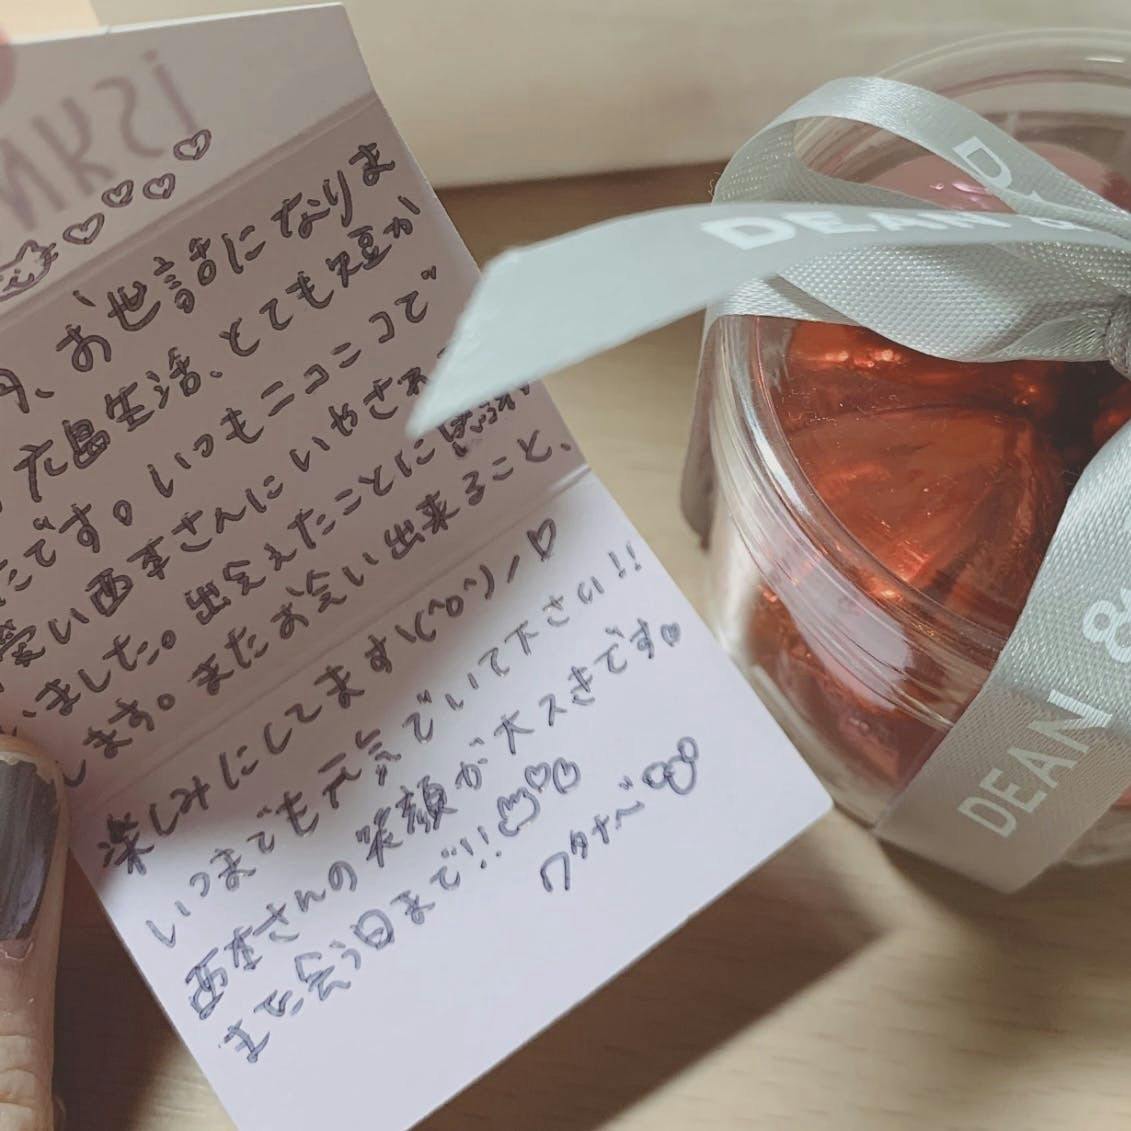 月、お世話になりま
広島生活、とても短か
たです。いつもニコニコで
愛い西本さんにいやされ
いました。出会えたことに感謝
します。またお会い出来ること、
楽しみにしてます\(^o^)/♡
いつまでも元気でいて下さい!!
西本さんの笑顔が大スきです。
また会う日まで!!
ワタナベ
DEAN &
DEAN &